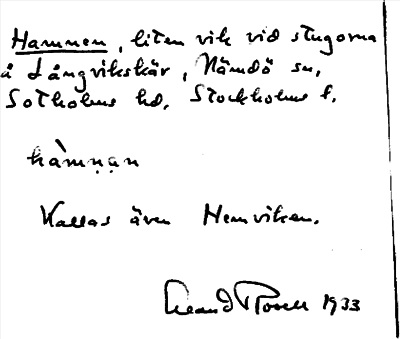 Hamnen, liten vik vid stugorna
å Långvikskär, Nämdö sn,
Sotholms hd, Stockholms l.
hàmṇạn
Kallas även Hemviken.
1933